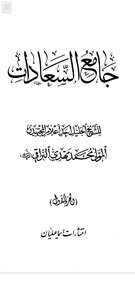 جامع السعادات
للشيخ الجليل احد اعلام المجتهدين
المولى محمد مهدي النراقي
الجزء الأول
انتشارات اسماعیلیان